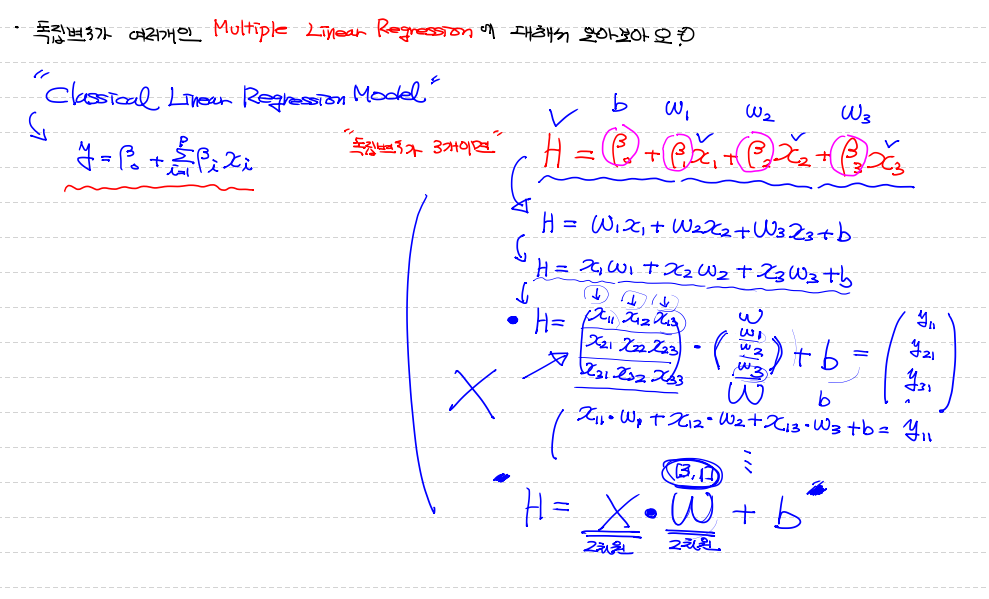 · 독립변수가 여러개인 Multiple Linear Regression에 대해서 알아보아요!
"Classical Linear Regression Model"
y = β₀ + Σᵢ₌₁ᵖ βᵢxᵢ
"독립변수가 3개이면"
b w₁ w₂ w₃
H = β₀ + β₁x₁ + β₂x₂ + β₃x₃
H = w₁x₁ + w₂x₂ + w₃x₃ + b
H = x₁w₁ + x₂w₂ + x₃w₃ + b
w
x₁₁ x₁₂ x₁₃ w₁ y₁₁
• H = (x₂₁ x₂₂ x₂₃) · (w₂) + b = (y₂₁)
x₃₁ x₃₂ x₃₃ w₃ y₃₁
X W b
x₁₁·w₁ + x₁₂·w₂ + x₁₃·w₃ + b = y₁₁
[3,1]
• H = X • W + b
2차원 2차원